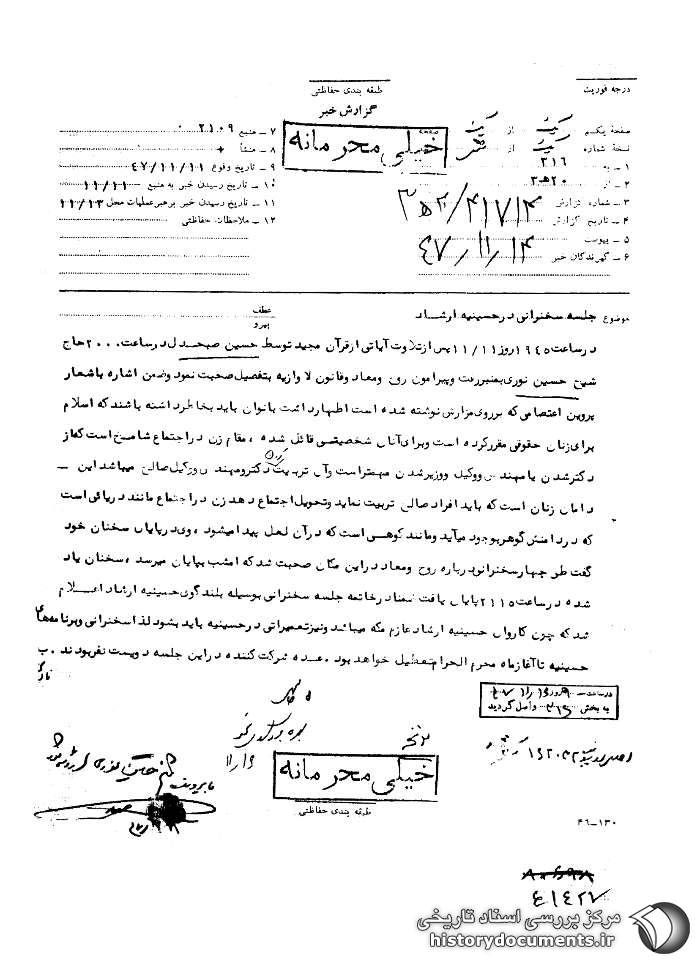 درجه فوریت
طبقه بندی حفاظتی
گزارش خبر
خیلی محرمانه
صفحه یکم از
نسخه شماره از
۱ ـ به ۳۱۶
۲ ـ از ۲۰ه‍۳
۳ ـ شماره گزارش
۴ ـ تاریخ گزارش ۴۷/۱۱/۱۴
۵ ـ پیوست
۶ ـ گیرندگان خبر
۷ ـ منبع ۲۱۰۹
۸ ـ منشأ
۹ ـ تاریخ وقوع ۴۷/۱۱/۱۱
۱۰ ـ تاریخ رسیدن خبر به منبع ۱۱/۱۱
۱۱ ـ تاریخ رسیدن خبر برهبر عملیات محل ۱۱/۱۳
۱۲ ـ ملاحظات حفاظتی
موضوع جلسه سخنرانی در حسینیه ارشاد
عطف
پیرو
در ساعت ۱۹۴۵ روز ۱۱/۱۱ پس از تلاوت آیاتی از قرآن مجید توسط حسین صبحدل در ساعت ۲۰۰۰ حاج
شیخ حسین نوری بمنبر رفت و پیرامون روح و معاد و قانون لاوازیه بتفصیل صحبت نمود و ضمن اشاره باشعار
پروین اعتصامی که بر روی مزارش نوشته شده است اظهار داشت بانوان باید بخاطر داشته باشند که اسلام
برای زنان حقوقی مقرر کرده است و برای آنان شخصیتی قائل شده ، مقام زن در اجتماع شامخ است که از
دکتر شدن یا مهندس و وکیل و وزیر شدن مهمتر است و آن تربیت کردن دکتر و مهندس و وکیل صالح میباشد این ـ
دامان زنان است که باید افراد صالح تربیت نماید و تحویل اجتماع دهد زن در اجتماع مانند دریائی است
که در دامنش گوهر بوجود میآید و مانند کوهی است که در آن لعل پیدا میشود ، وی در پایان سخنان خود
گفت طی چهار سخنرانی درباره روح و معاد در این مکان صحبت شد که امشب بپایان میرسد ، سخنان یاد
شده در ساعت ۲۱۱۵ پایان یافت ضمناً در خاتمه جلسه سخنرانی بوسیله بلندگوی حسینیه ارشاد اعلام
شد که چون کاروان حسینیه ارشاد عازم مکه میباشد و نیز تعمیراتی در حسینیه باید بشود لذا سخنرانی و برنامه‌های
حسینیه تا آغاز ماه محرم الحرام تعطیل خواهد بود . عده شرکت کننده در این جلسه دویست نفر بودند . ب
در ساعت روز
به بخش ۳۱۶ واصل گردید
خیلی محرمانه
طبقه بندی حفاظتی
۴۶-۱۳۰
مرکز بررسی اسناد تاریخی
historydocuments.ir